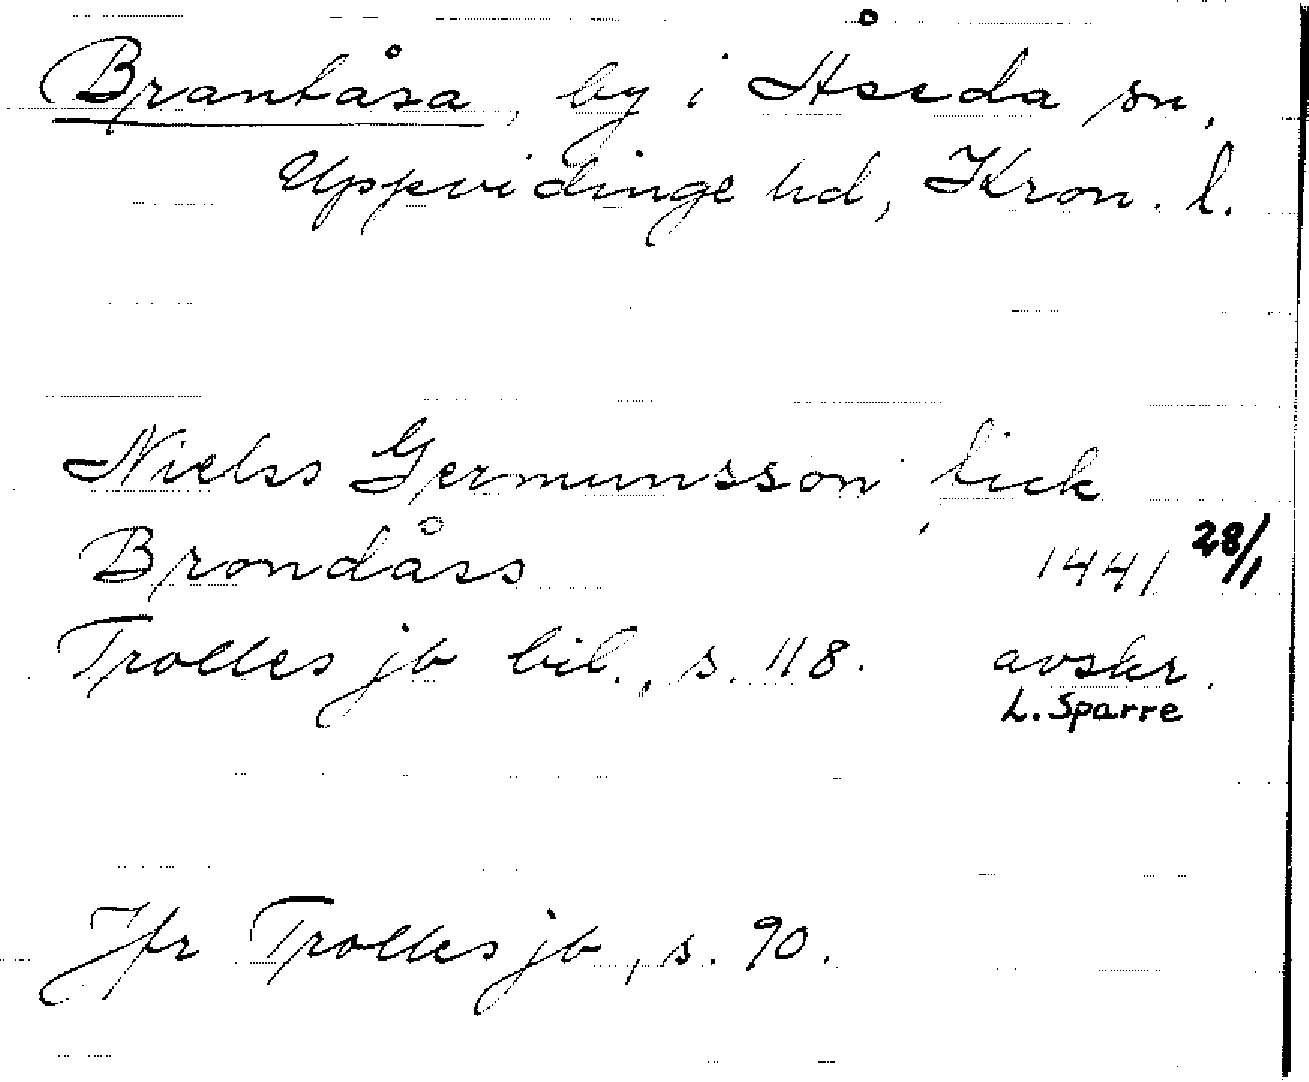 Brantåsa, by i Åseda sn,
Uppvidinge hd, Kron. l.
Nielss Germunsson i
Brondåss 1441 28/1
Trolles jb bil., s. 118. avskr.
L. Sparre
Jfr Trolles jb, s. 90.